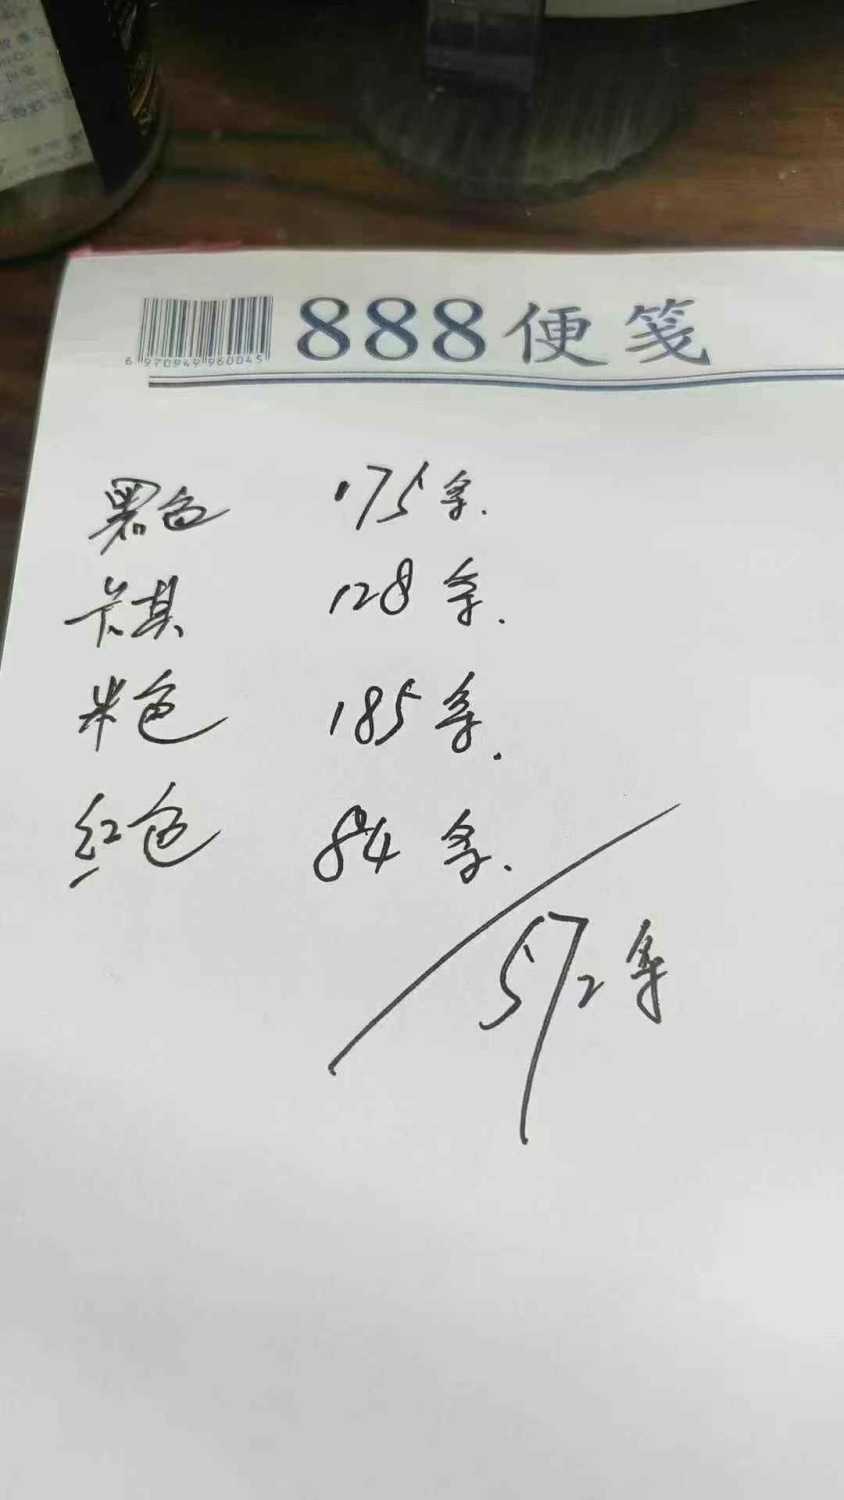 888便笺
6 970949 960045
黑色 175条.
卡其 128条.
米色 185条.
红色 84条.
572条